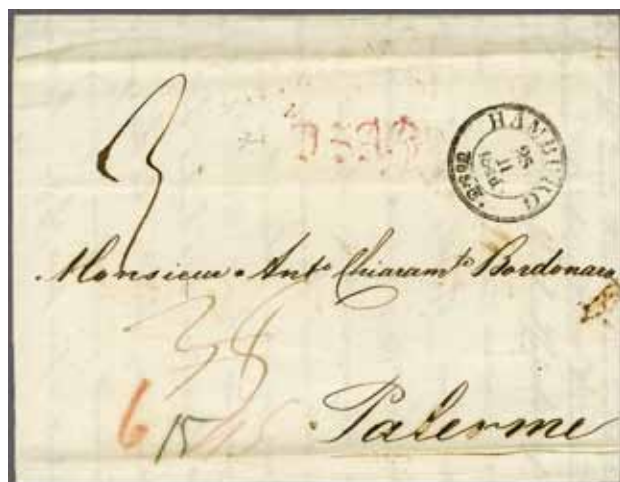 3
HAMBURG
25
11
Monsieur Anto Chiaramte Bordonaro
38
6 15 15
Palerme